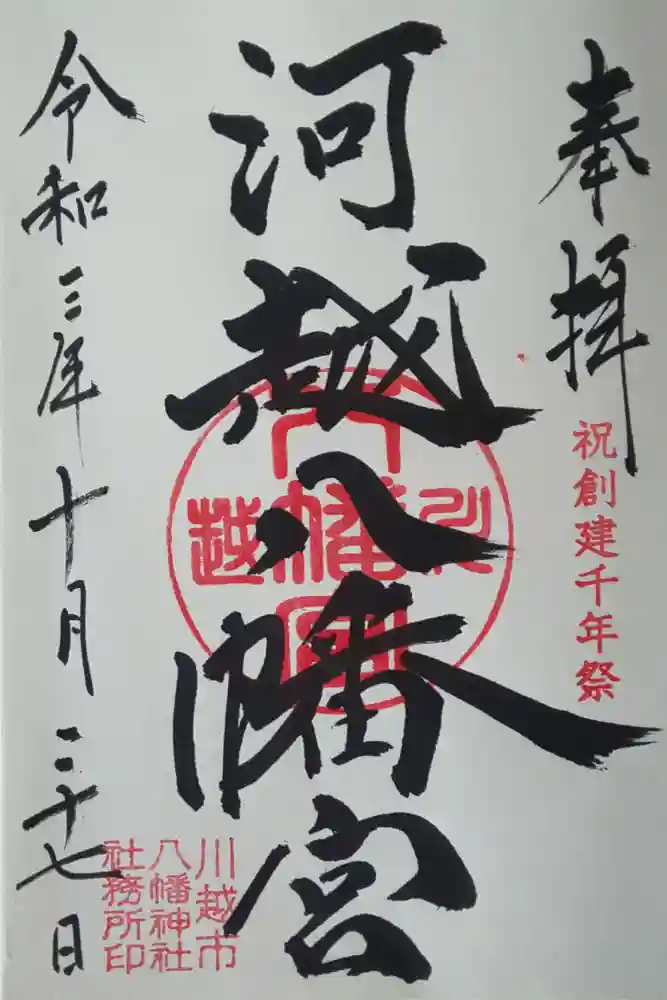 奉拝
祝創建千年祭
河越八幡宮
川越
八幡宮
令和三年十月二十七日
川越市
八幡神社
社務所印